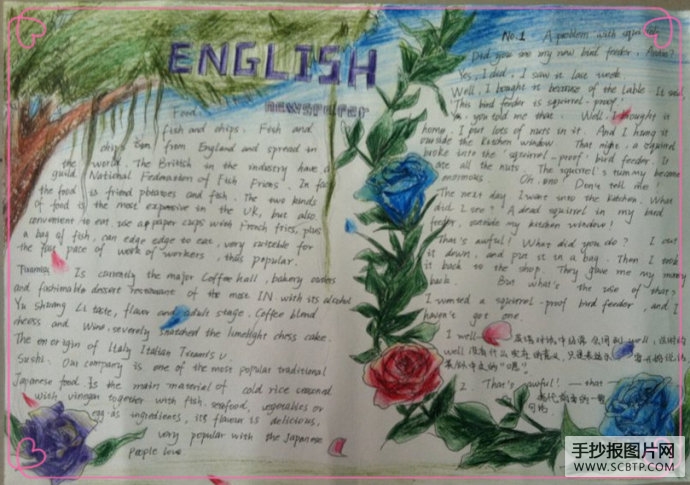 ENGLISH
newspaper
Food.
fish and chips. Fish and
chips from England and spread in
the world. The British in the industry have a
guild National Federation of Fish Friers. In fact
the food is friend potatoes and fish. The two kinds
of food is the most expensive in the UK, but also
convenient to eat, use a paper cups with French fries, plus
a bag of fish, can edge edge to eat, very suitable for
the fast pace of work of workers, thus popular.
Is currently the major Coffee hall, bakery
and fashionable dessert restaurant of the most IN. with its alcohol
Yu Shuang Li taste, flavor and adult stage. Coffee blend
cheess and Wine, severely snatched the limelight chess cake.
The em origin of Italy Italian
Sushi. Our company is one of the most popular traditional
Japanese food. Is the main material of cold rice seasoned
with vinegar together with fish, seafood, vegetables or
egg as ingredients, its flavour is delicious,
very popular with the Japanese
people love
No.1 A problem with squirrel
Did you see my new bird feeder, Anna?
Yes, I did. I saw it last week.
Well, I bought it because of the lable. It said,
This bird feeder is squirrel-proof.
Yes, you told me that. Well, I bought it
home, I put lots of nuts in it. And I hung it
outside the kitchen window. That night, a squirrel
broke into the "squirrel-proof" bird feeder. It
ate all the nuts. The squirrel's tummy became
enormous. Oh, no! Don't tell me!
The next day, I went into the kitchen. What
did I see? A dead squirrel in my bird
feeder, outside my kitchen window!
That's awful! What did you do? I cut
it down, and put it in a bag. Then I took
it back to the shop. They gave me my money
back. But what's the use of that?
I wanted a squirrel-proof bird feeder, and I
haven't got one.
1 well
well 没有什么实在的意义,只是表达
2. That's awful! — that
手抄报图片网
WWW.SCBTP.COM